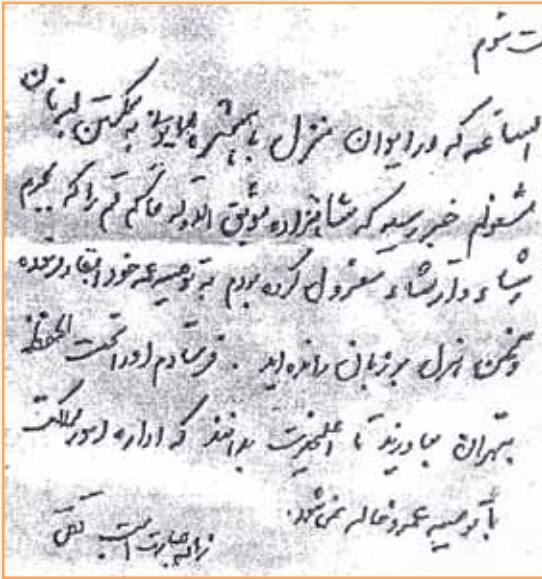 ت شوم
الساعه که در ایوان منزل با همشیره همایونی به شکستن لبه نان
مشغولم خبر رسید که شاهزاده موثق الدوله حاکم قم را که بجرم
رشاء و ارتشاء معزول کرده بودم به توصیه عمه خود ابقاء فرموده
و سخن هزل بر زبان رانده اید . فرستادم او را تحت الحفظ
بتهران بیاورند تا اعلیحضرت بدانند که اداره امور مملکت
با توصیه عمه و خاله نمی شود.
زیاده جسارت است تقی